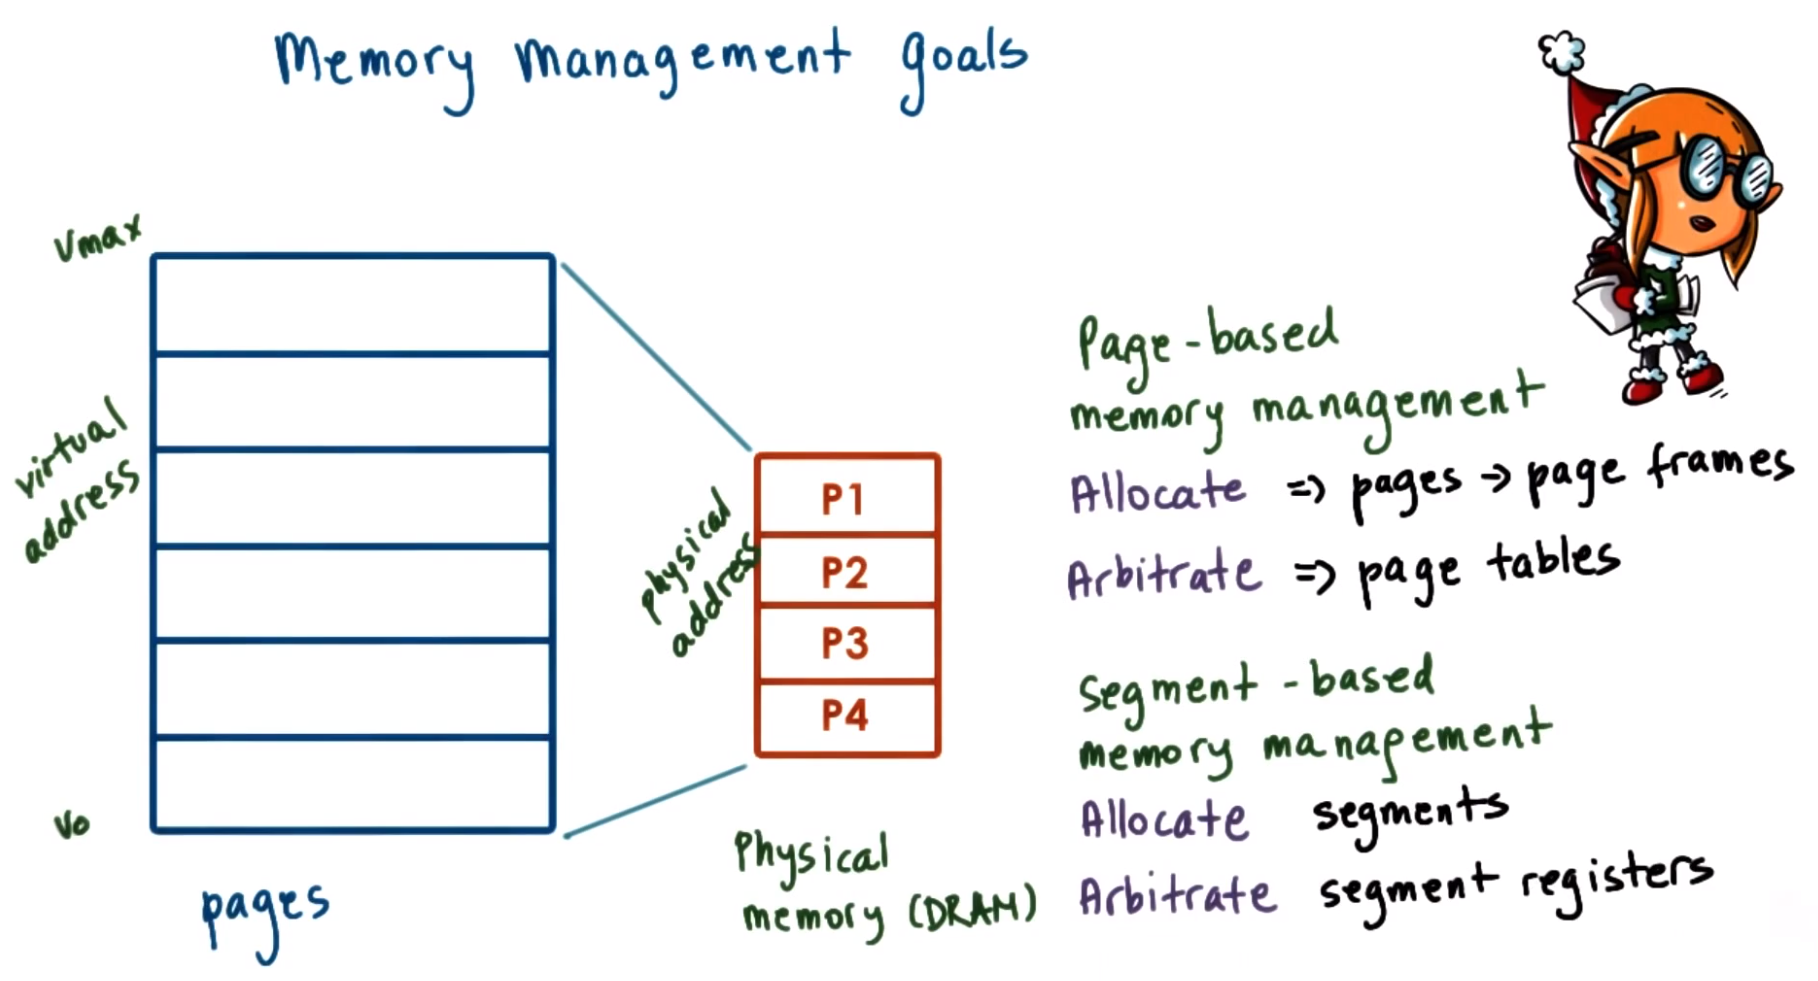 Memory management goals
Vmax
virtual
address
Vo
pages
physical
address
P1
P2
P3
P4
Physical
memory (DRAM)
Page-based
memory management
Allocate => pages → page frames
Arbitrate => page tables
Segment-based
memory management
Allocate segments
Arbitrate segment registers